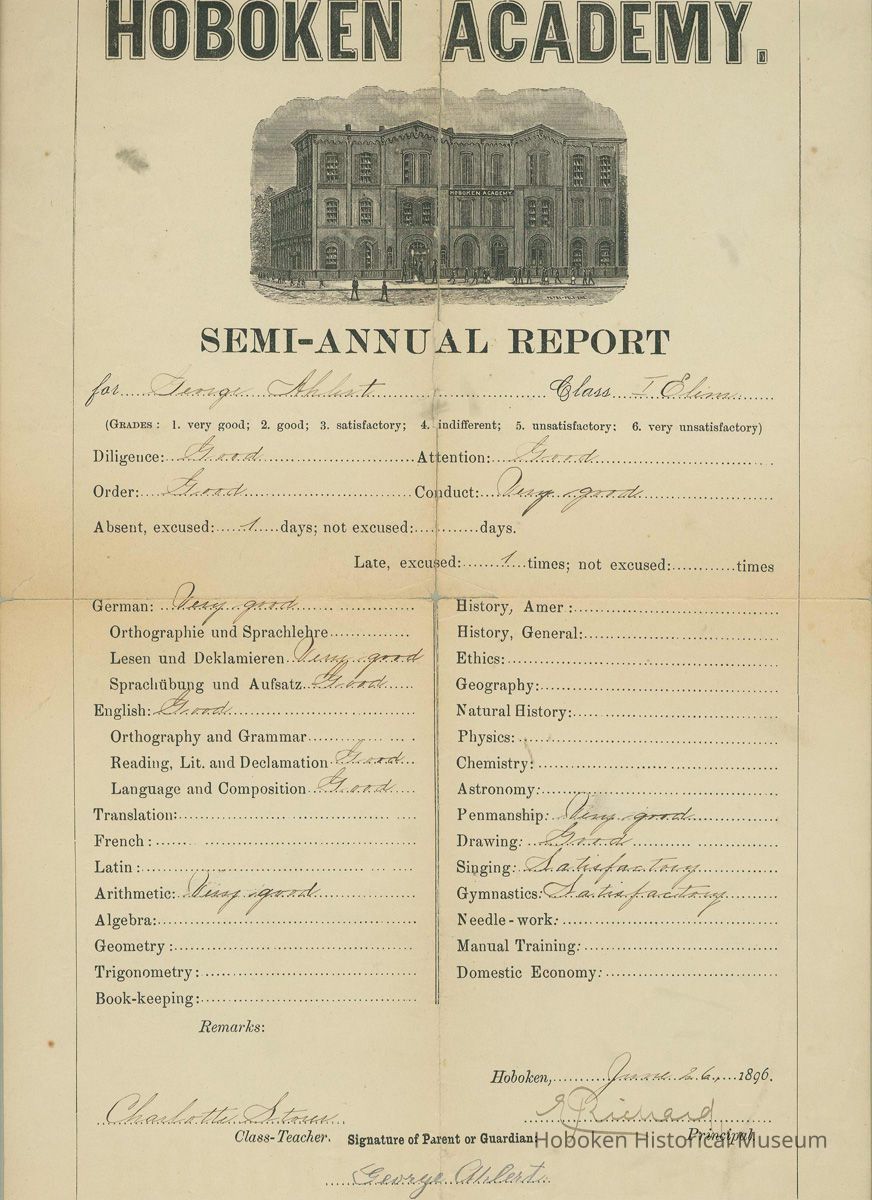 HOBOKEN ACADEMY.
HOBOKEN ACADEMY.
SEMI-ANNUAL REPORT
for Ahlert Class I Elem
(GRADES: 1. very good; 2. good; 3. satisfactory; 4. indifferent; 5. unsatisfactory; 6. very unsatisfactory)
Diligence: Good Attention: Good
Order: Good Conduct: Very good
Absent, excused: 1 days; not excused: days.
Late, excused: 1 times; not excused: times
German: Very good
Orthographie und Sprachlehre
Lesen und Deklamieren Very good
Sprachübung und Aufsatz Good
English: Good
Orthography and Grammar
Reading, Lit. and Declamation Good
Language and Composition Good
Translation:
French:
Latin:
Arithmetic: Very good
Algebra:
Geometry:
Trigonometry:
Book-keeping:
History, Amer:
History, General:
Ethics:
Geography:
Natural History:
Physics:
Chemistry:
Astronomy:
Penmanship: Very good
Drawing: Good
Singing: Satisfactory
Gymnastics: Satisfactory
Needle-work:
Manual Training:
Domestic Economy:
Remarks:
Hoboken, June 26, 1896.
Charlotte
Class-Teacher. Signature of Parent or Guardian: Principal.
Hoboken Historical Museum
George Ahlert